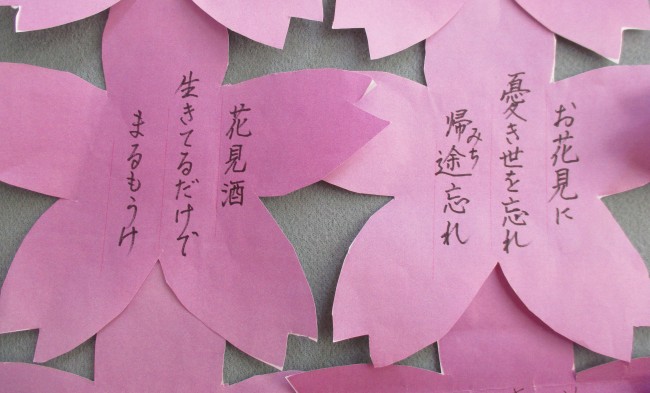 お花見に
憂き世を忘れ
帰途忘れ
みち
花見酒
生きてるだけで
まるもうけ